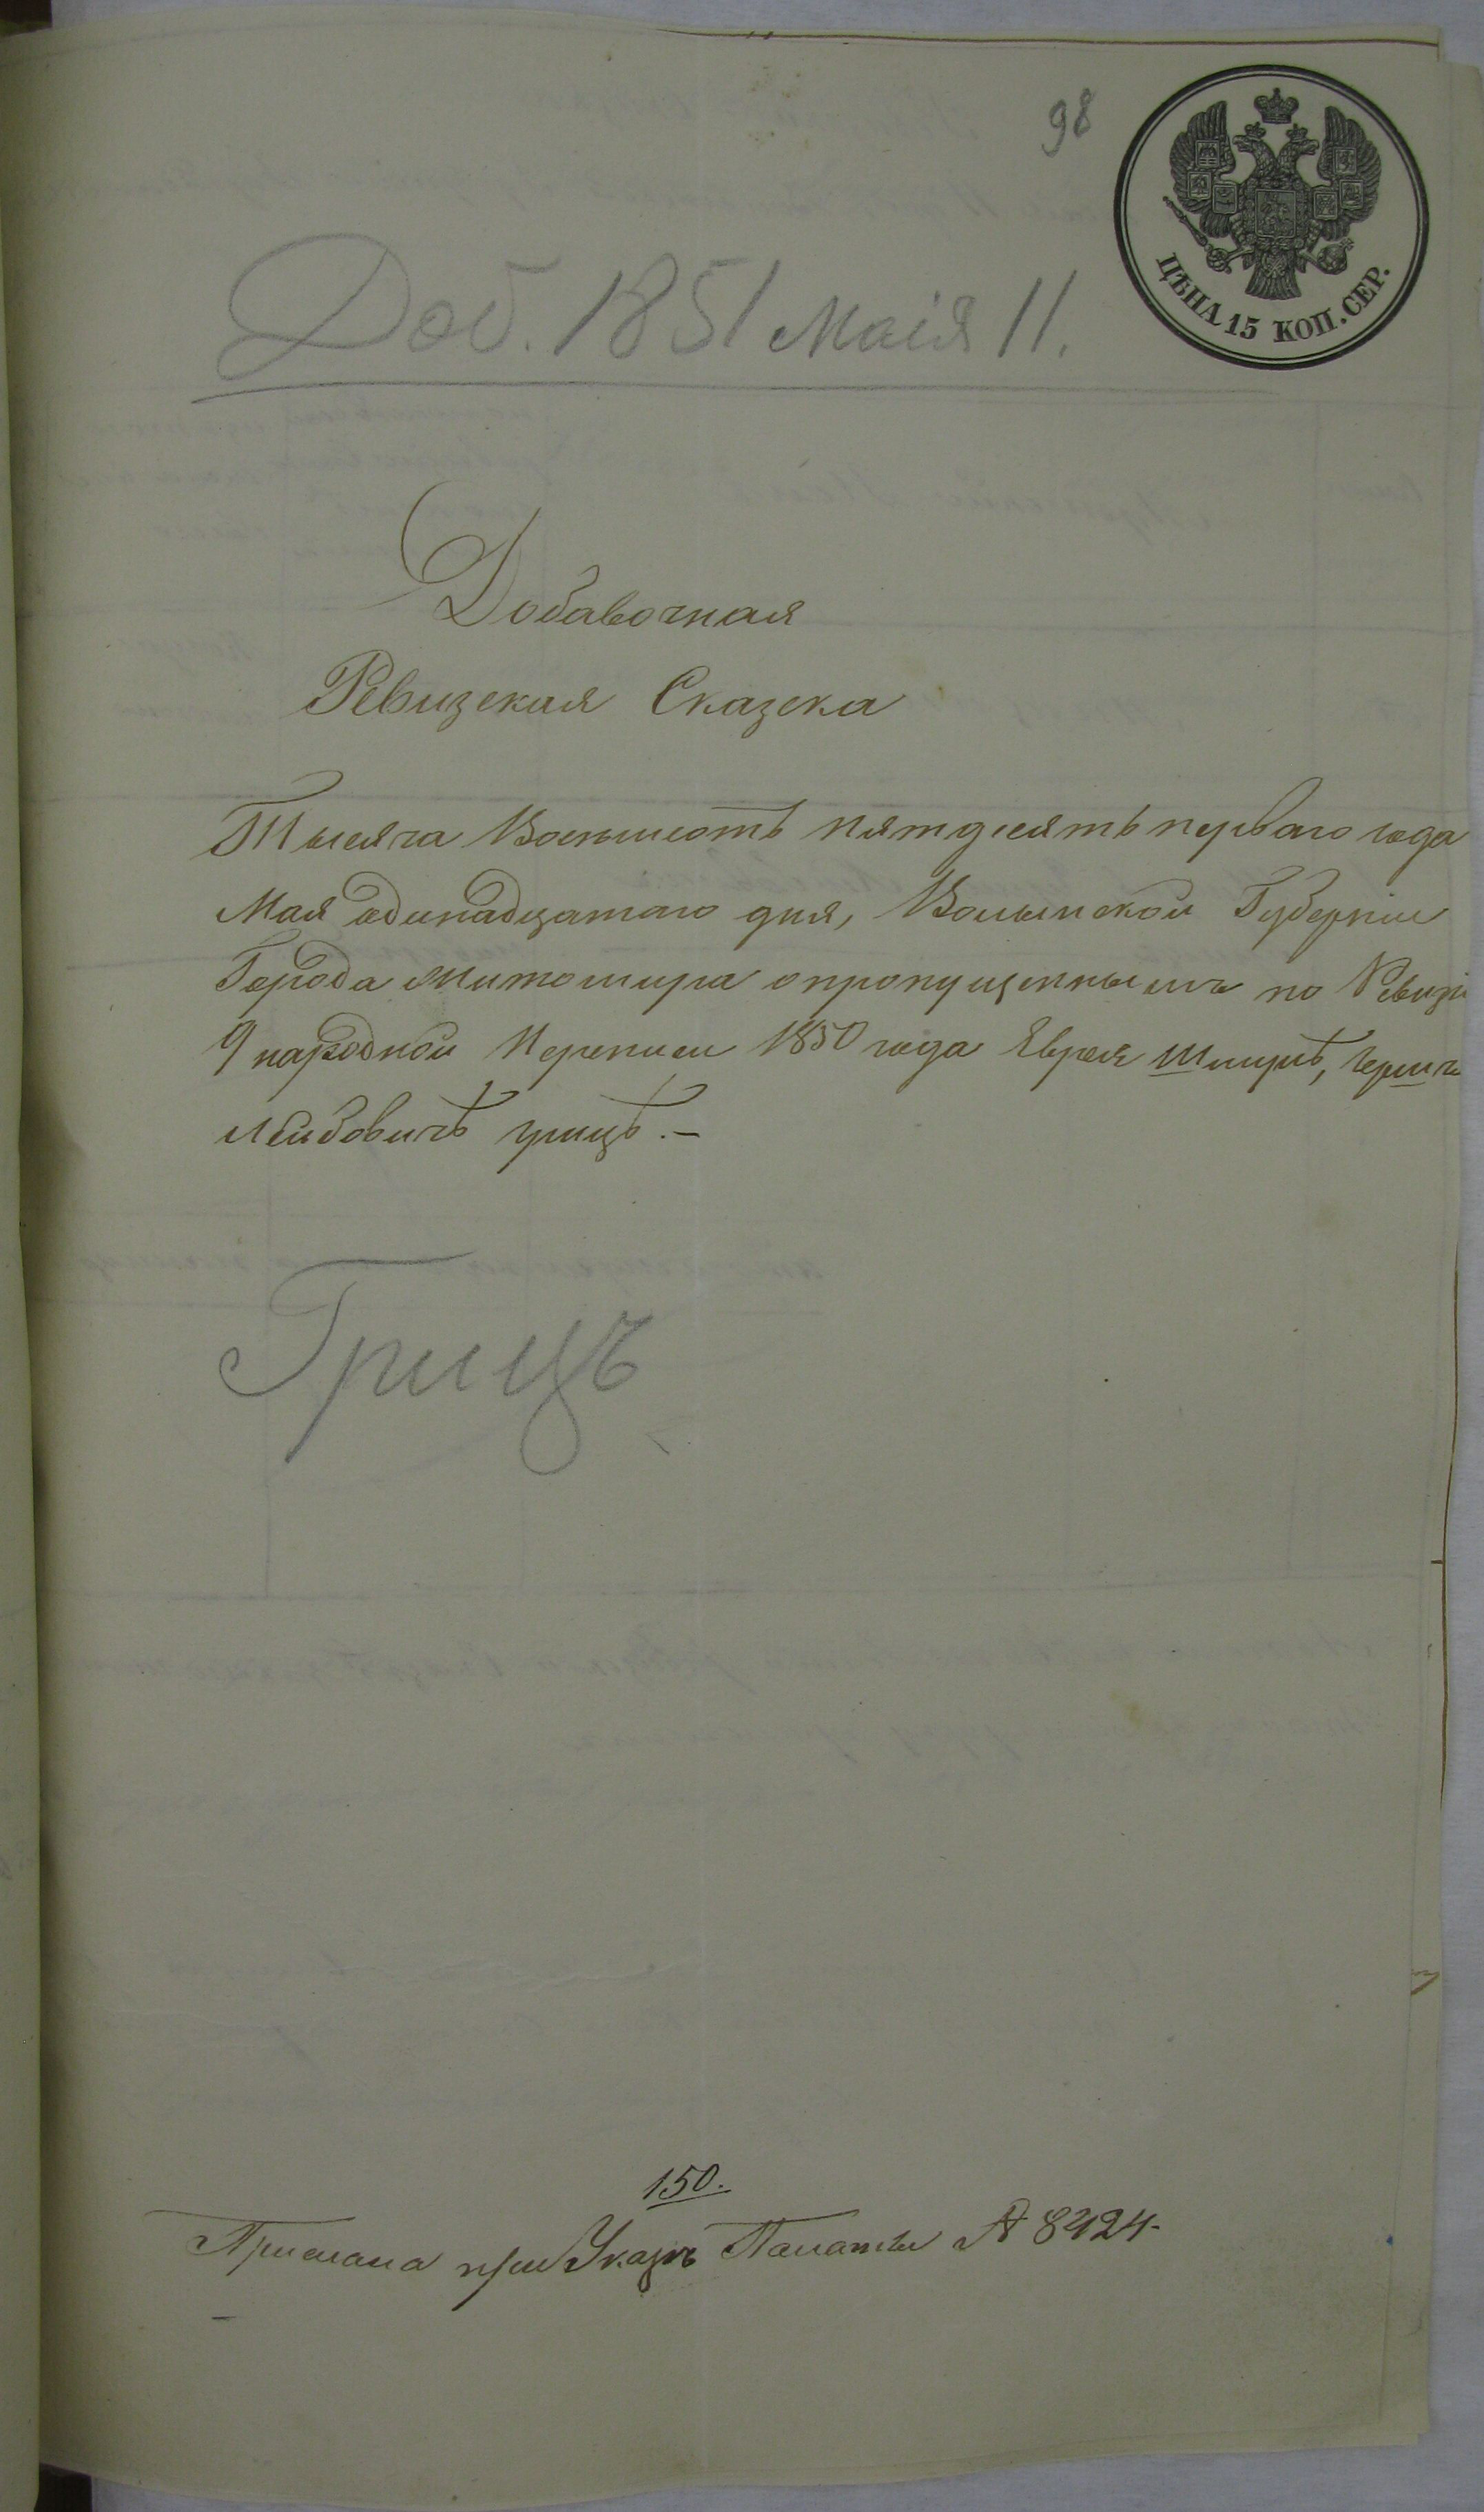 98
ЦѢНА 15 КОП. СЕР.
Доб. 1851 Маія 11.
Добавочная
Ревизская Сказска
Тысяча Восемьсотъ пятдесять перваго года
Мая одинадцатаго дня, Волынской Губерніи
Города Житомира о пропущенныхъ по Ревизі
9 народной Переписи 1850 года Еврея
Лейбовичъ грицъ. –
Грицъ
150.
Прислана при Указѣ Палаты № 8424